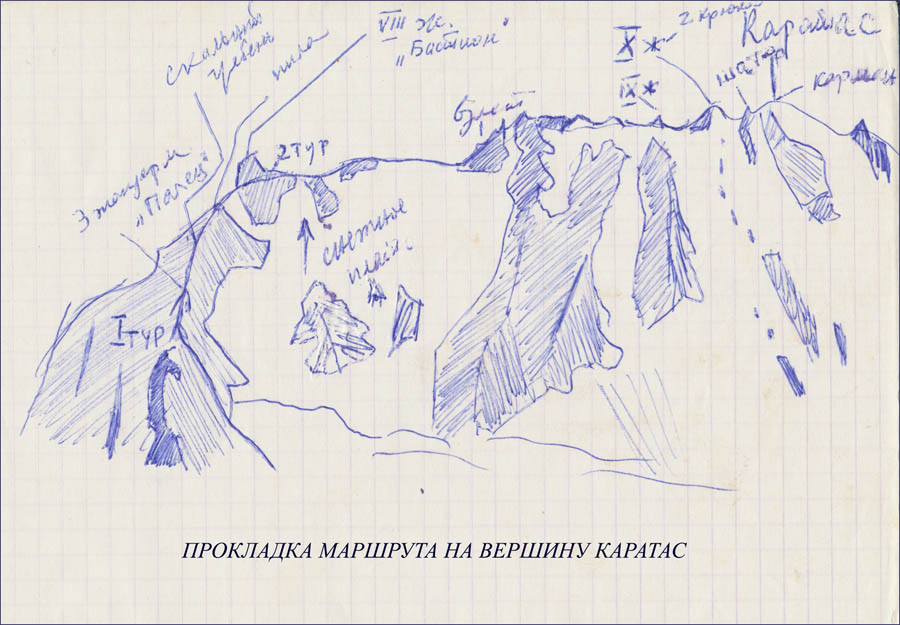 скальный
гребень
пила
VIII ж.
„Бастион“
X ж
2 крюка
Каратас
IX ж
шатёр
карман
3 жандарм
„Палец“
2 тур
снежное
I тур
ПРОКЛАДКА МАРШРУТА НА ВЕРШИНУ КАРАТАС